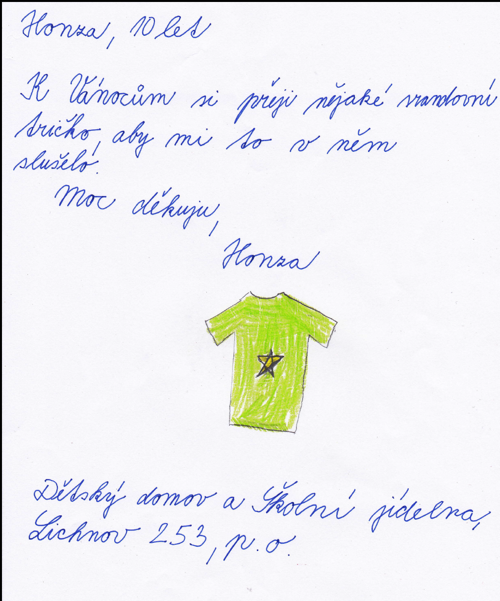 Honza, 10 let
K Vánocům si přeji nějaké srandovní
tričko, aby mi to v něm
slušelo.
Moc děkuju,
Honza
Dětský domov a Školní jídelna,
Lichnov 253, p.o.